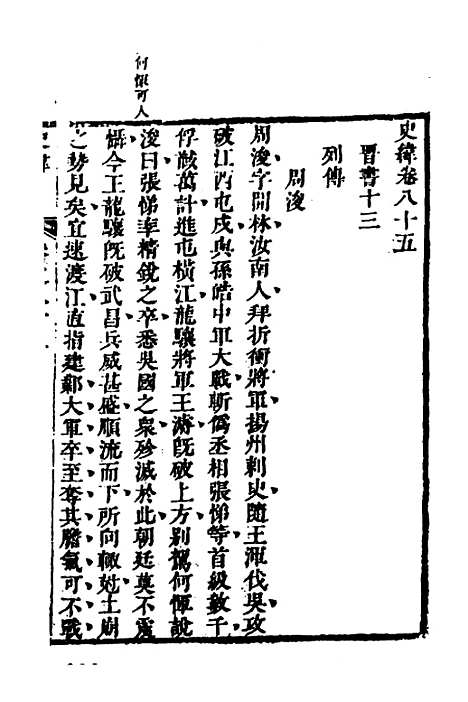 史緯卷八十五
晉書十三
列傳
周浚
周浚字開林汝南人拜折衝將軍揚州刺史隨王渾伐吳攻
破江西屯戍與孫皓中軍大戰斬僞丞相張悌等首級數千
俘馘萬計進屯橫江龍驤將軍王濬旣破上方別駕何惲說
浚曰張悌率精銳之卒悉吳國之衆殄滅於此朝廷莫不震
懾今王龍驤旣破武昌兵威甚盛順流而下所向輒尅土崩
之勢見矣宜速渡江直指建鄴大軍卒至奪其膽氣可不戰
何惲可人